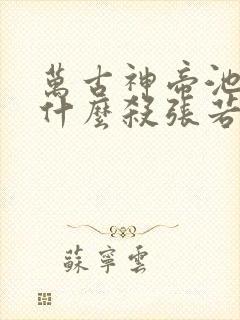 萬古神帝池
什麼殺張若
蘇寧雲